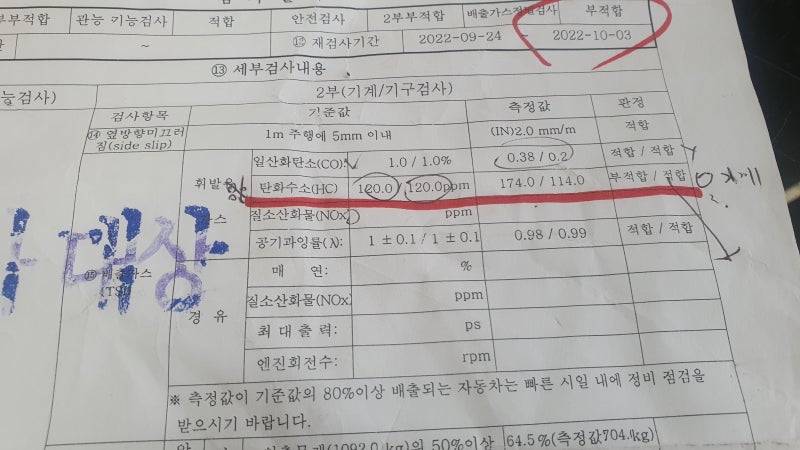 부적합 관능 기능검사 적합 안전검사 2부부적합 배출가스정밀검사 부적합
~ ⑫ 재검사기간 2022-09-24 ~ 2022-10-03
⑬ 세부검사내용
능검사) 2부(기계/기구검사)
검사항목 기준값 측정값 판정
⑭ 옆방향미끄러짐(side slip) 1m 주행에 5mm 이내 (IN)2.0 mm/m 적합
휘발유 일산화탄소(CO): 1.0 / 1.0% 0.38 / 0.2 적합 / 적합
탄화수소(HC) 120.0 / 120.0ppm 174.0 / 114.0 부적합 / 적합
가스 질소산화물(NOx) ppm
공기과잉률(λ): 1 ± 0.1 / 1 ± 0.1 0.98 / 0.99 적합 / 적합
대상
⑮ 배출가스
경유 매 연: %
질소산화물(NOx) ppm
최대출력: ps
엔진회전수: rpm
※ 측정값이 기준값의 80%이상 배출되는 자동차는 빠른 시일 내에 정비 점검을
받으시기 바랍니다.
(1092.0 kg)의 50%이상 64.5%(측정값704.kg)